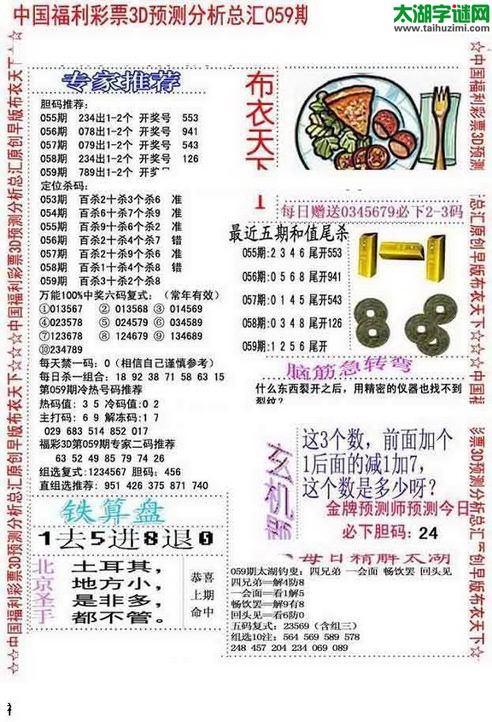 中国福利彩票3D预测分析总汇059期
太湖字谜网
www.taihuzimi.com
专家推荐
胆码推荐:
055期 234出1-2个 开奖号 553
056期 078出1-2个 开奖号 941
057期 079出1-2个 开奖号 543
058期 234出1-2个 开奖号 126
059期 789出1-2个
定位杀码:
053期 百杀2十杀3个杀6 准
054期 百杀6十杀7个杀9 准
055期 百杀4十杀0个杀2 准
056期 百杀2十杀4个杀7 错
057期 百杀0十杀9个杀1 准
058期 百杀1十杀4个杀8 错
059期 百杀3十杀2个杀8
万能100%中奖六码复式:(常年有效)
①013567 ②013568 ③014569
④023578 ⑤024579 ⑥034589
⑦123678 ⑧124679 ⑨134689
⑩234789
每天禁一码:0(相信自己谨慎参考)
每日杀一组合: 18 92 38 71 58 63 15
第059期冷热号码推荐
热码值: 3 5 冷码值: 0 2
主打码: 6 9 解冻码: 1 7
029 683 514 852 017
福彩3D第059期专家二码推荐
63 52 49 85 79 74 26
组选复式:1234567 胆码: 456
直组选推荐: 951 426 375 871 740
铁算盘
1去5进8退0
北京圣手
土耳其,
地方小,
是非多,
都不管。
恭喜
上期
命中
布衣天下
每日赠送0345679必下2-3码
最近五期和值尾杀
055期:2 3 4 6 尾开553
056期:0 5 6 8 尾开941
057期:0 1 4 5 尾开543
058期:0 3 4 8 尾开126
059期:1 2 5 6 尾开
脑筋急转弯
什么东西裂开之后,用精密的仪器也找不到
裂纹?
玄机题
这3个数,前面加个
1后面的减1加7,
这个数是多少呀?
金牌预测师预测今日
必下胆码: 24
每日精解太湖
059期太湖钓叟: 四兄弟 一会面 畅饮罢 回头见
四兄弟==解4防8
一会面==看1解5
畅饮罢==解9有8
回头见==看6防0
五码复式: 23569 (含组三)
组选10注: 564 569 589 578
248 457 204 234 069 089
☆中国福利彩票3D预测分析总汇原创早版布衣天下☆☆☆中国福利彩票3D预测分析总汇原创早版布衣天下☆☆
☆中国福利彩票3D预测
总汇原创早版布衣天下☆☆☆中国福
彩票3D预测分析总汇原创早版布衣天下☆☆